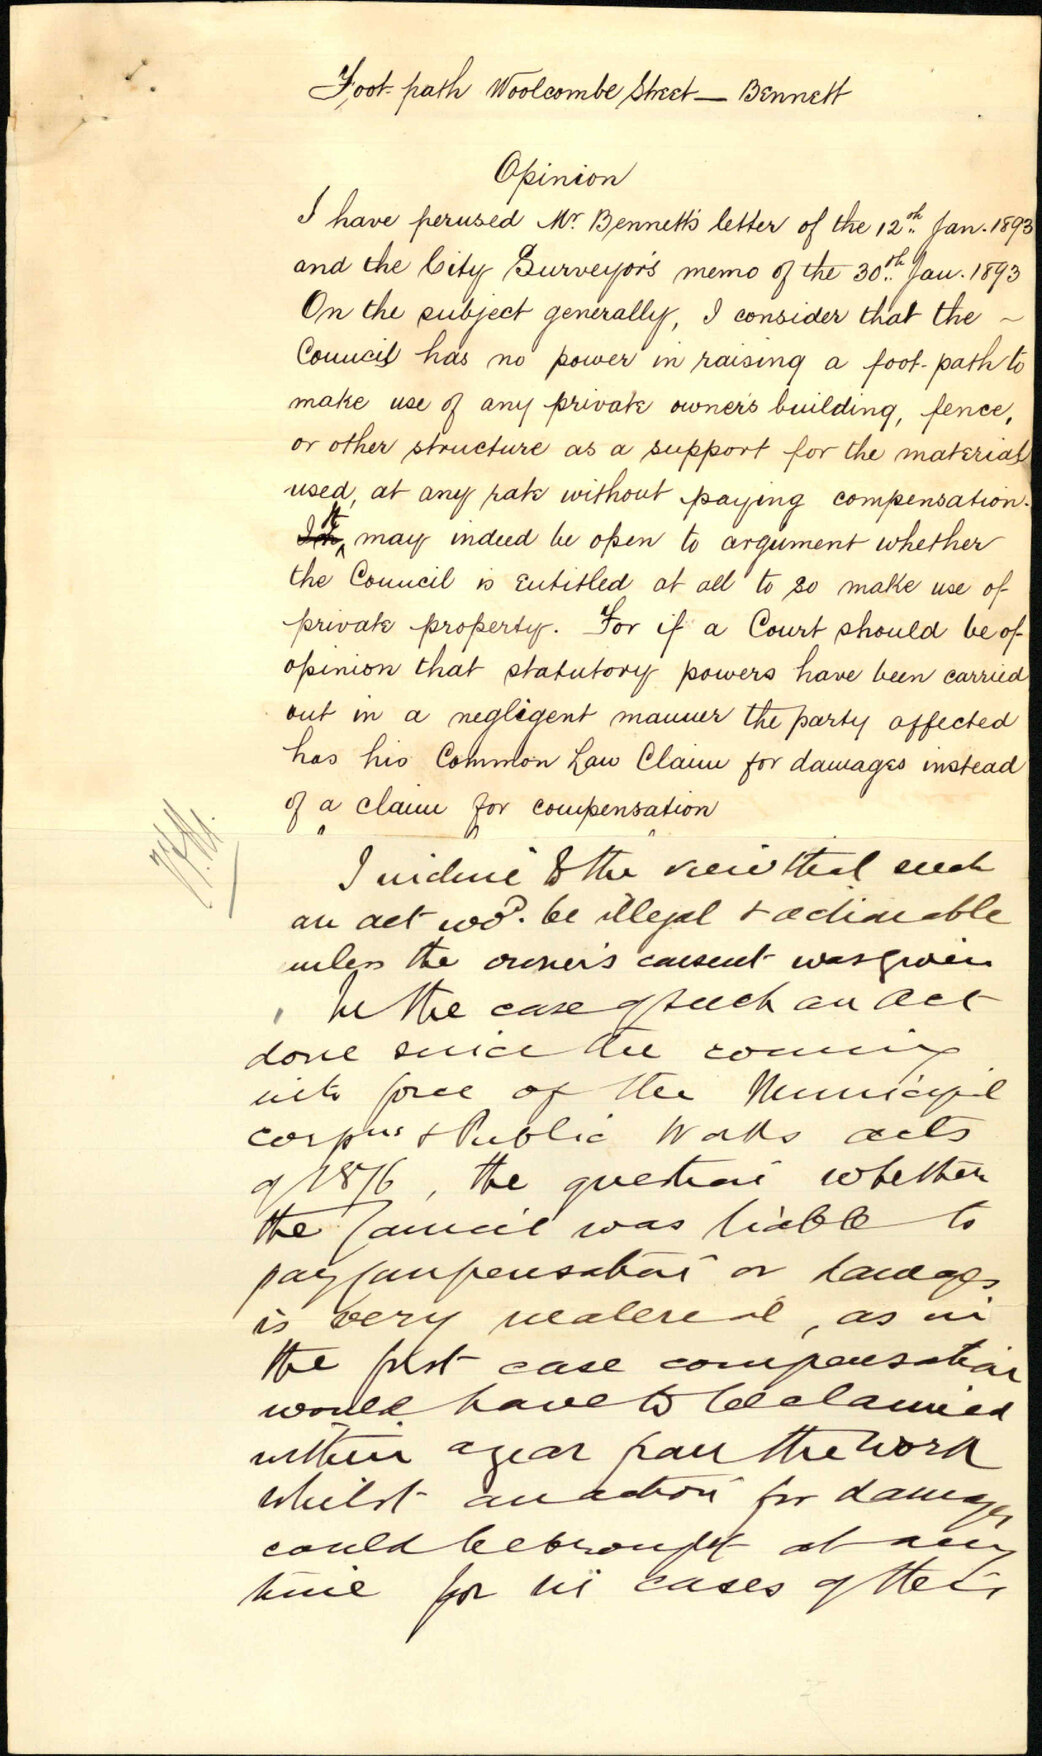 Foot-path Woolcombe Street — Bennett
Opinion
I have perused Mr. Bennett's letter of the 12th Jan. 1893
and the City Surveyor's memo of the 30th Jan. 1893
On the subject generally, I consider that the ~
Council has no power in raising a foot-path to
make use of any private owner's building, fence,
or other structure as a support for the material
used, at any rate without paying compensation.
It may indeed be open to argument whether
the Council is entitled at all to so make use of
private property. For if a Court should be of
opinion that statutory powers have been carried
out in a negligent manner the party affected
has his Common Law Claim for damages instead
of a claim for compensation
I incline to the view that such
an act wod. be illegal & actionable
unless the owner's consent was given
In the case of such an act
done since the coming
into force of the Municipal
Corpns & Public Works acts
of 1876, the question whether
the Council was liable to
pay compensation or damages
is very material, as in
the first case compensation
would have to be claimed
within a year from the work
whilst an action for damages
could be brought at any
time for in cases of this